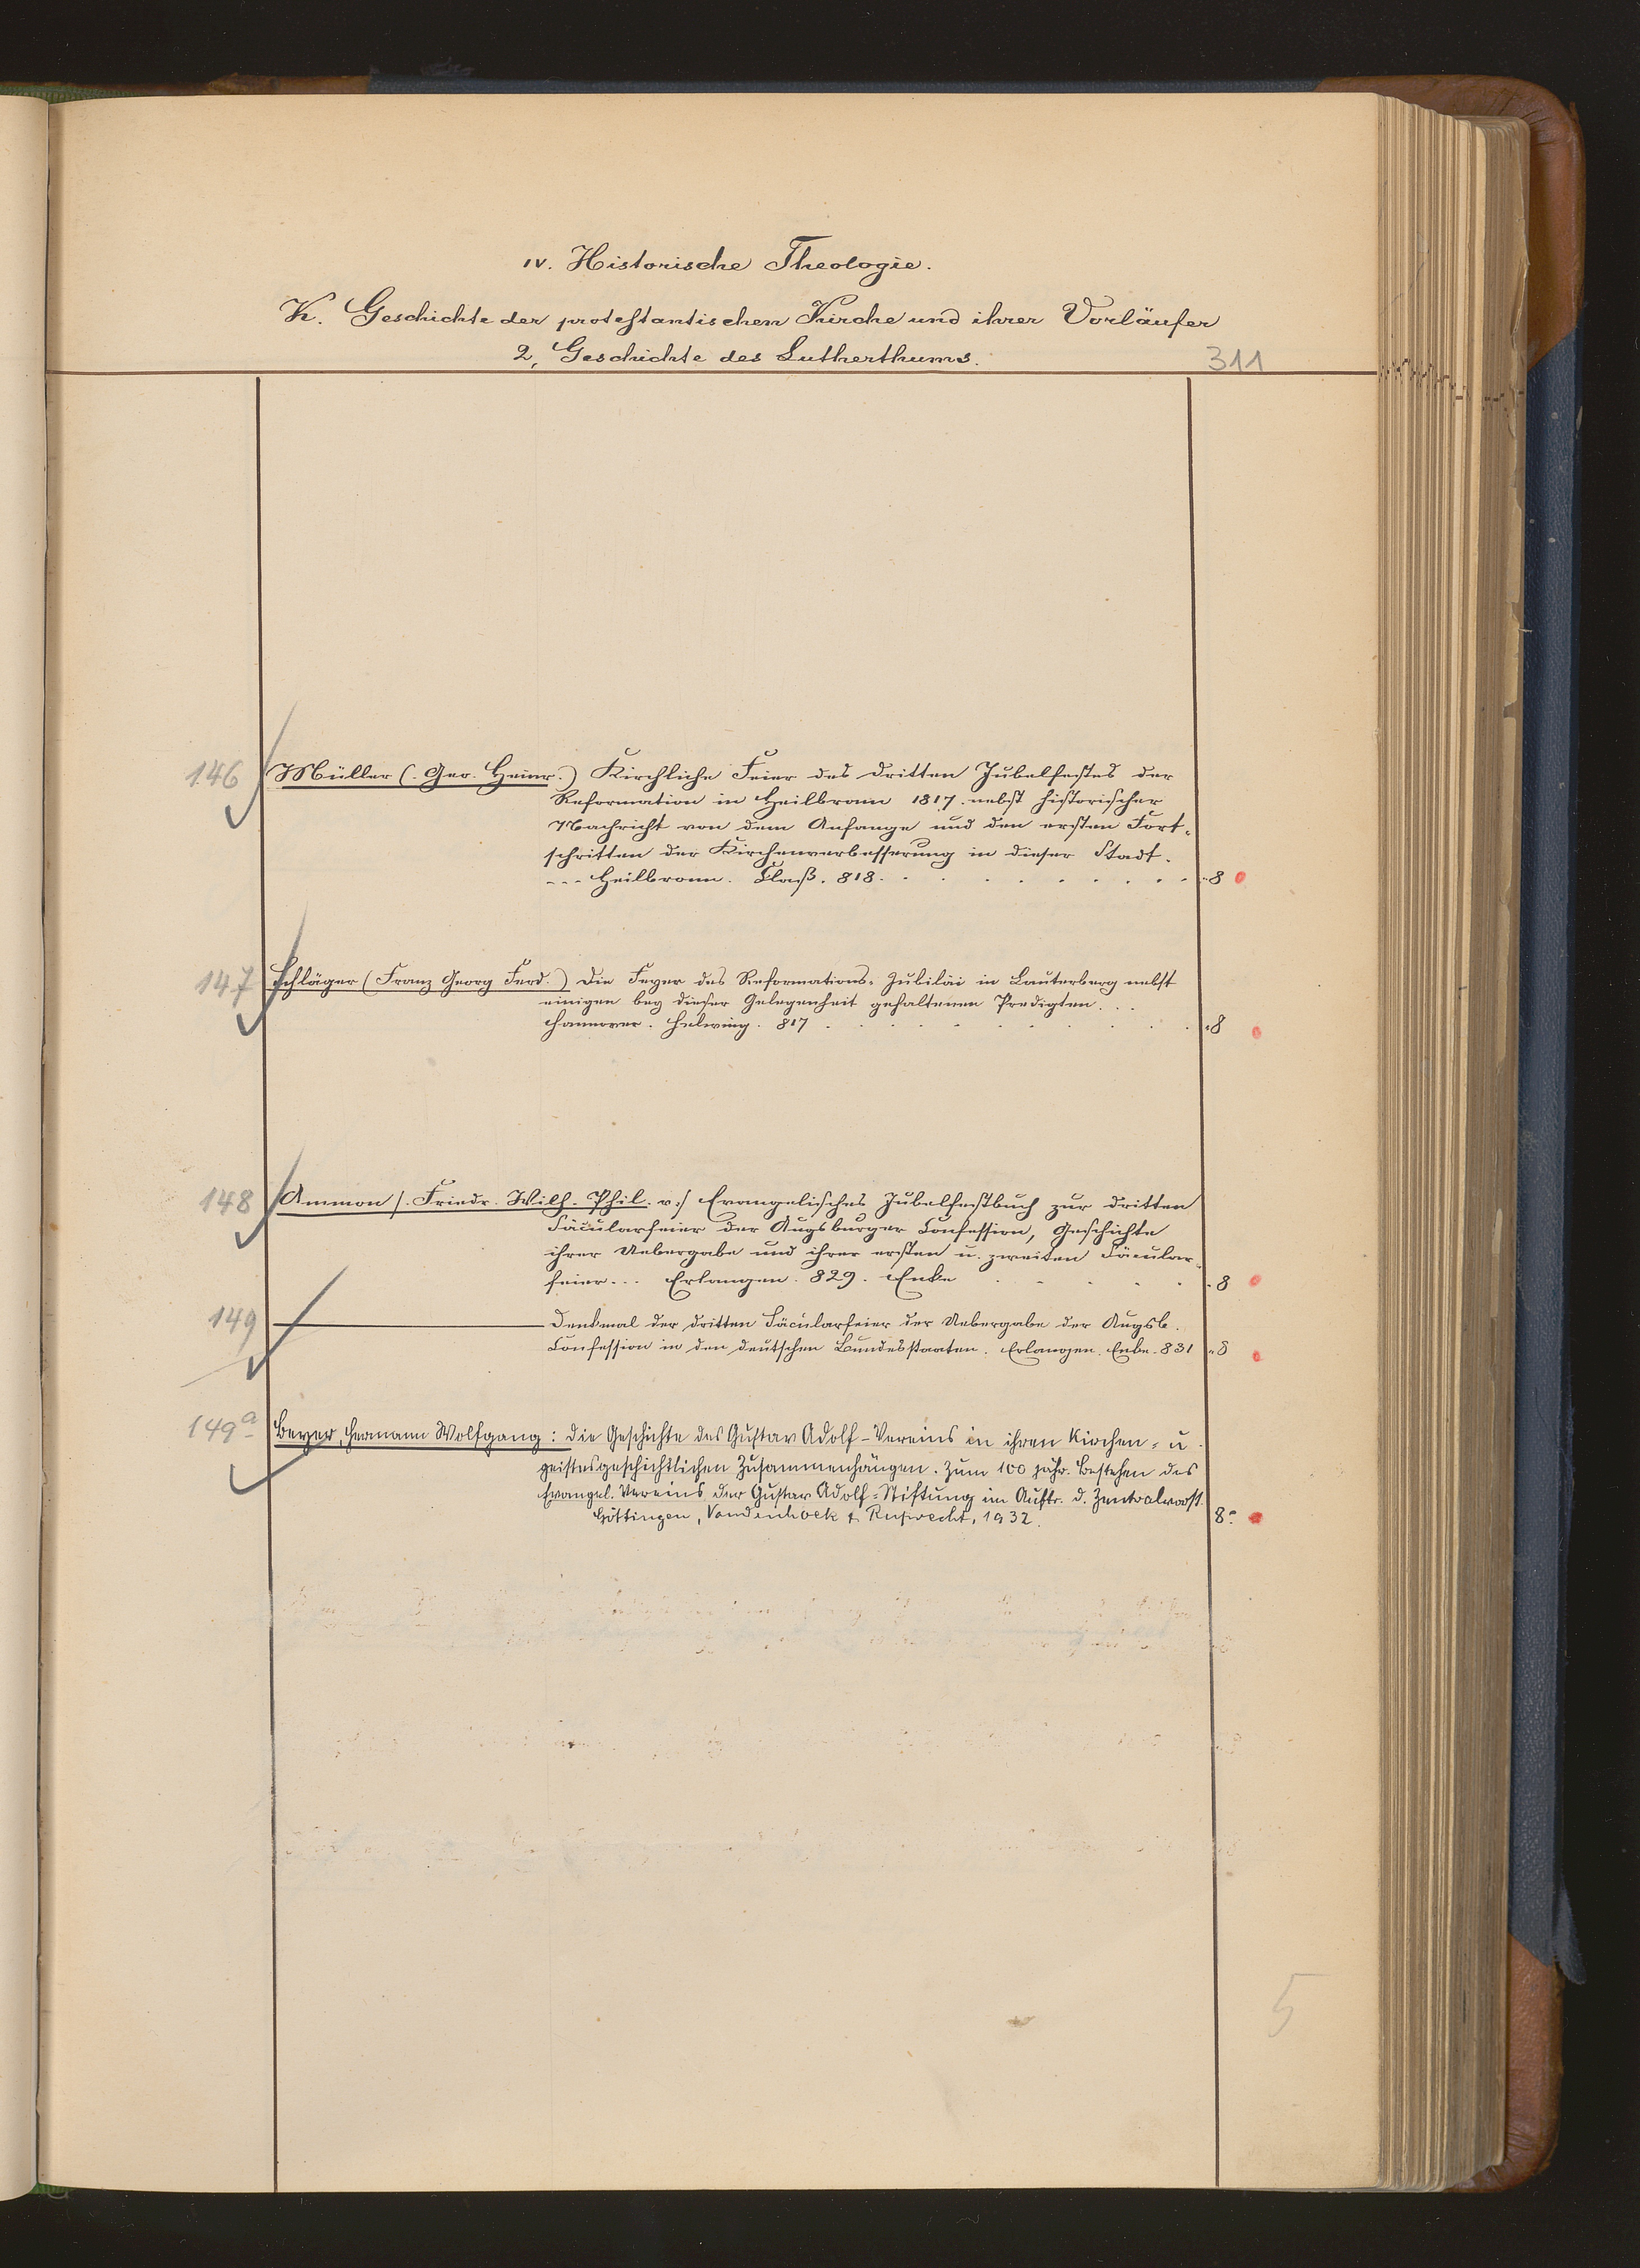 IV. Historische Theologie.
K. Geschichte der protestantischen Kirche und ihrer Vorläufer
2, Geschichte des Lutherthums.
311
146 Müller (. Geo. Heinr.) Kirchliche Feier des dritten Jubelfestes der
Reformation in Heilbronn 1817. nebst historischer
Nachricht von dem Anfange und den ersten Fort-
schritten der Kirchenverbesserung in dieser Stadt.
--- Heilbronn. Claß. 818. 8
147 Schläger (Franz Georg Ferd.) Die Feyer des Reformations-Jubiläi in Lauterberg nebst
einigen bey dieser Gelegenheit gehaltenen Predigten...
Hannover. Helwing. 817 8
148 Ammon /. Friedr. Wilh. Phil. v:/ Evangelisches Jubelfestbuch zur dritten
Säcularfeier der Augsburger Confession, Geschichte
ihrer Uebergabe und ihrer ersten u. zweiten Säcular-
feier... Erlangen. 829. Enke 8
149 Denkmal der dritten Säcularfeier der Uebergabe der Augsb.
Confession in den deutschen Bundesstaaten. Erlangen. Enke. 831 8
149a Beyer, Hermann Wolfgang: Die Geschichte des Gustav Adolf-Vereins in ihren kirchen- u.
geistesgeschichtlichen Zusammenhängen. Zum 100 jähr. Bestehen des
Evangel. Vereins der Gustav Adolf-Stiftung im Auftr. d. Zentralvorst.
Göttingen, Vandenhoek & Ruprecht, 1932. 8°
5